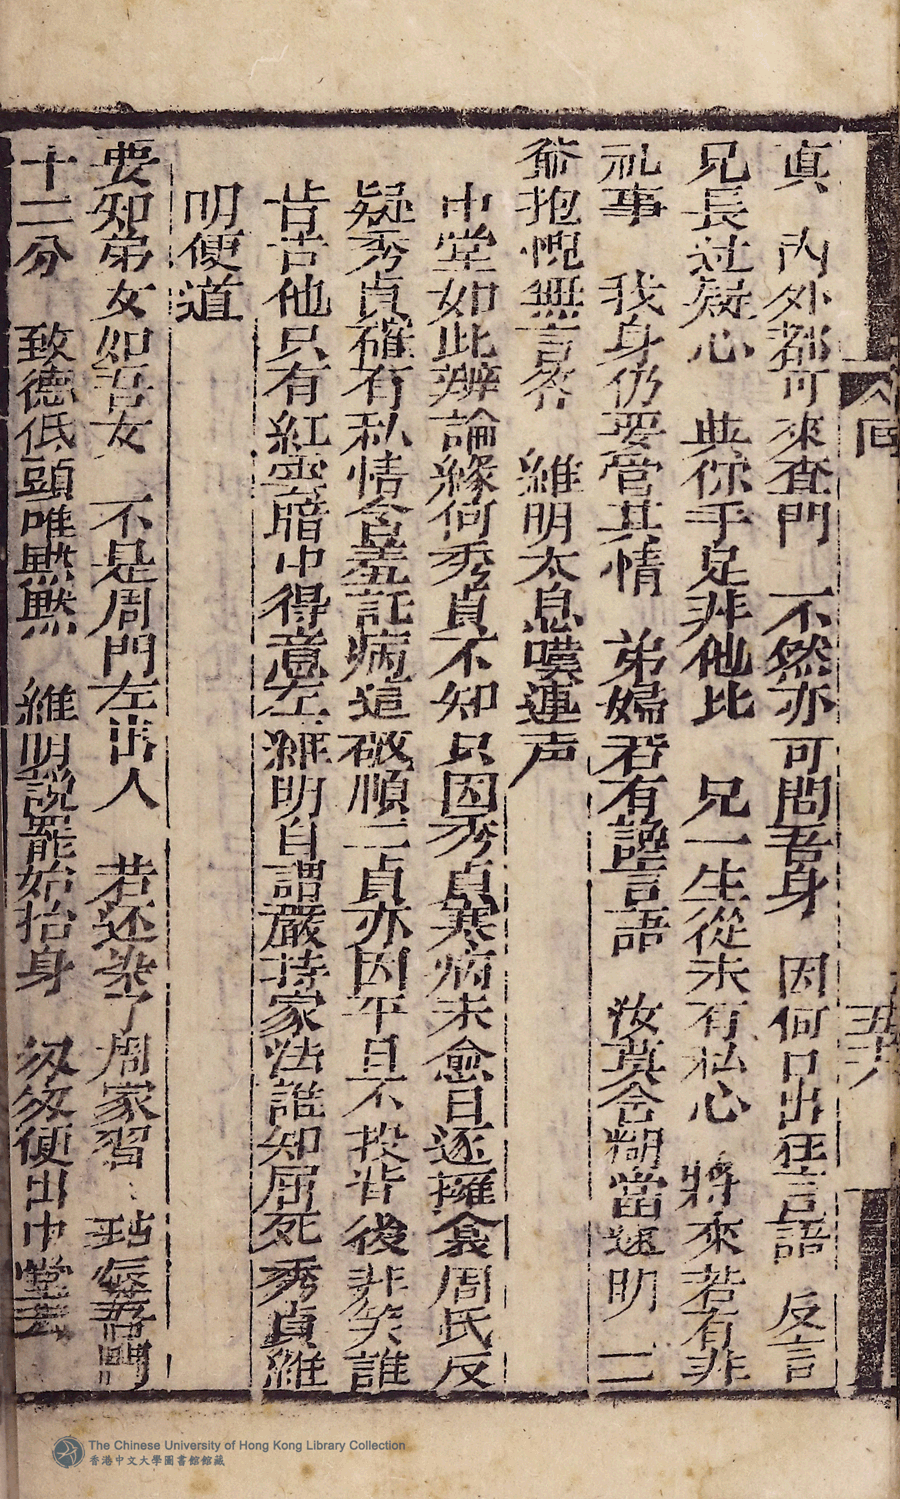 真　內外都可來查門　不然亦可問吾身　因何口出狂言語　反言
兄長过疑心　與你手足非他比　兄一生從未有私心　將來若有非
礼事　我身仍要管其情　弟婦若有讒言語　汝莫含糊當速明　二
爺抱愧無言答　維明太息嘆連声
中堂如此辨論緣何秀貞不知只因秀貞寒病未愈日逐擁衾周氏反
疑秀貞確有私情含羞託病這破順二貞亦因平日不投背後非笑誰
肯告他只有紅雲暗中得意左維明自謂嚴持家法誰知屈死秀貞維
明便道
要知弟女如吾女　不是周門左出人　若还染了周家習　玷辱吾門
十二分　致德低頭唯默默　維明説罷始抬身　匆匆便出中堂去
五六
The Chinese University of Hong Kong Library Collection
香港中文大學圖書館館藏